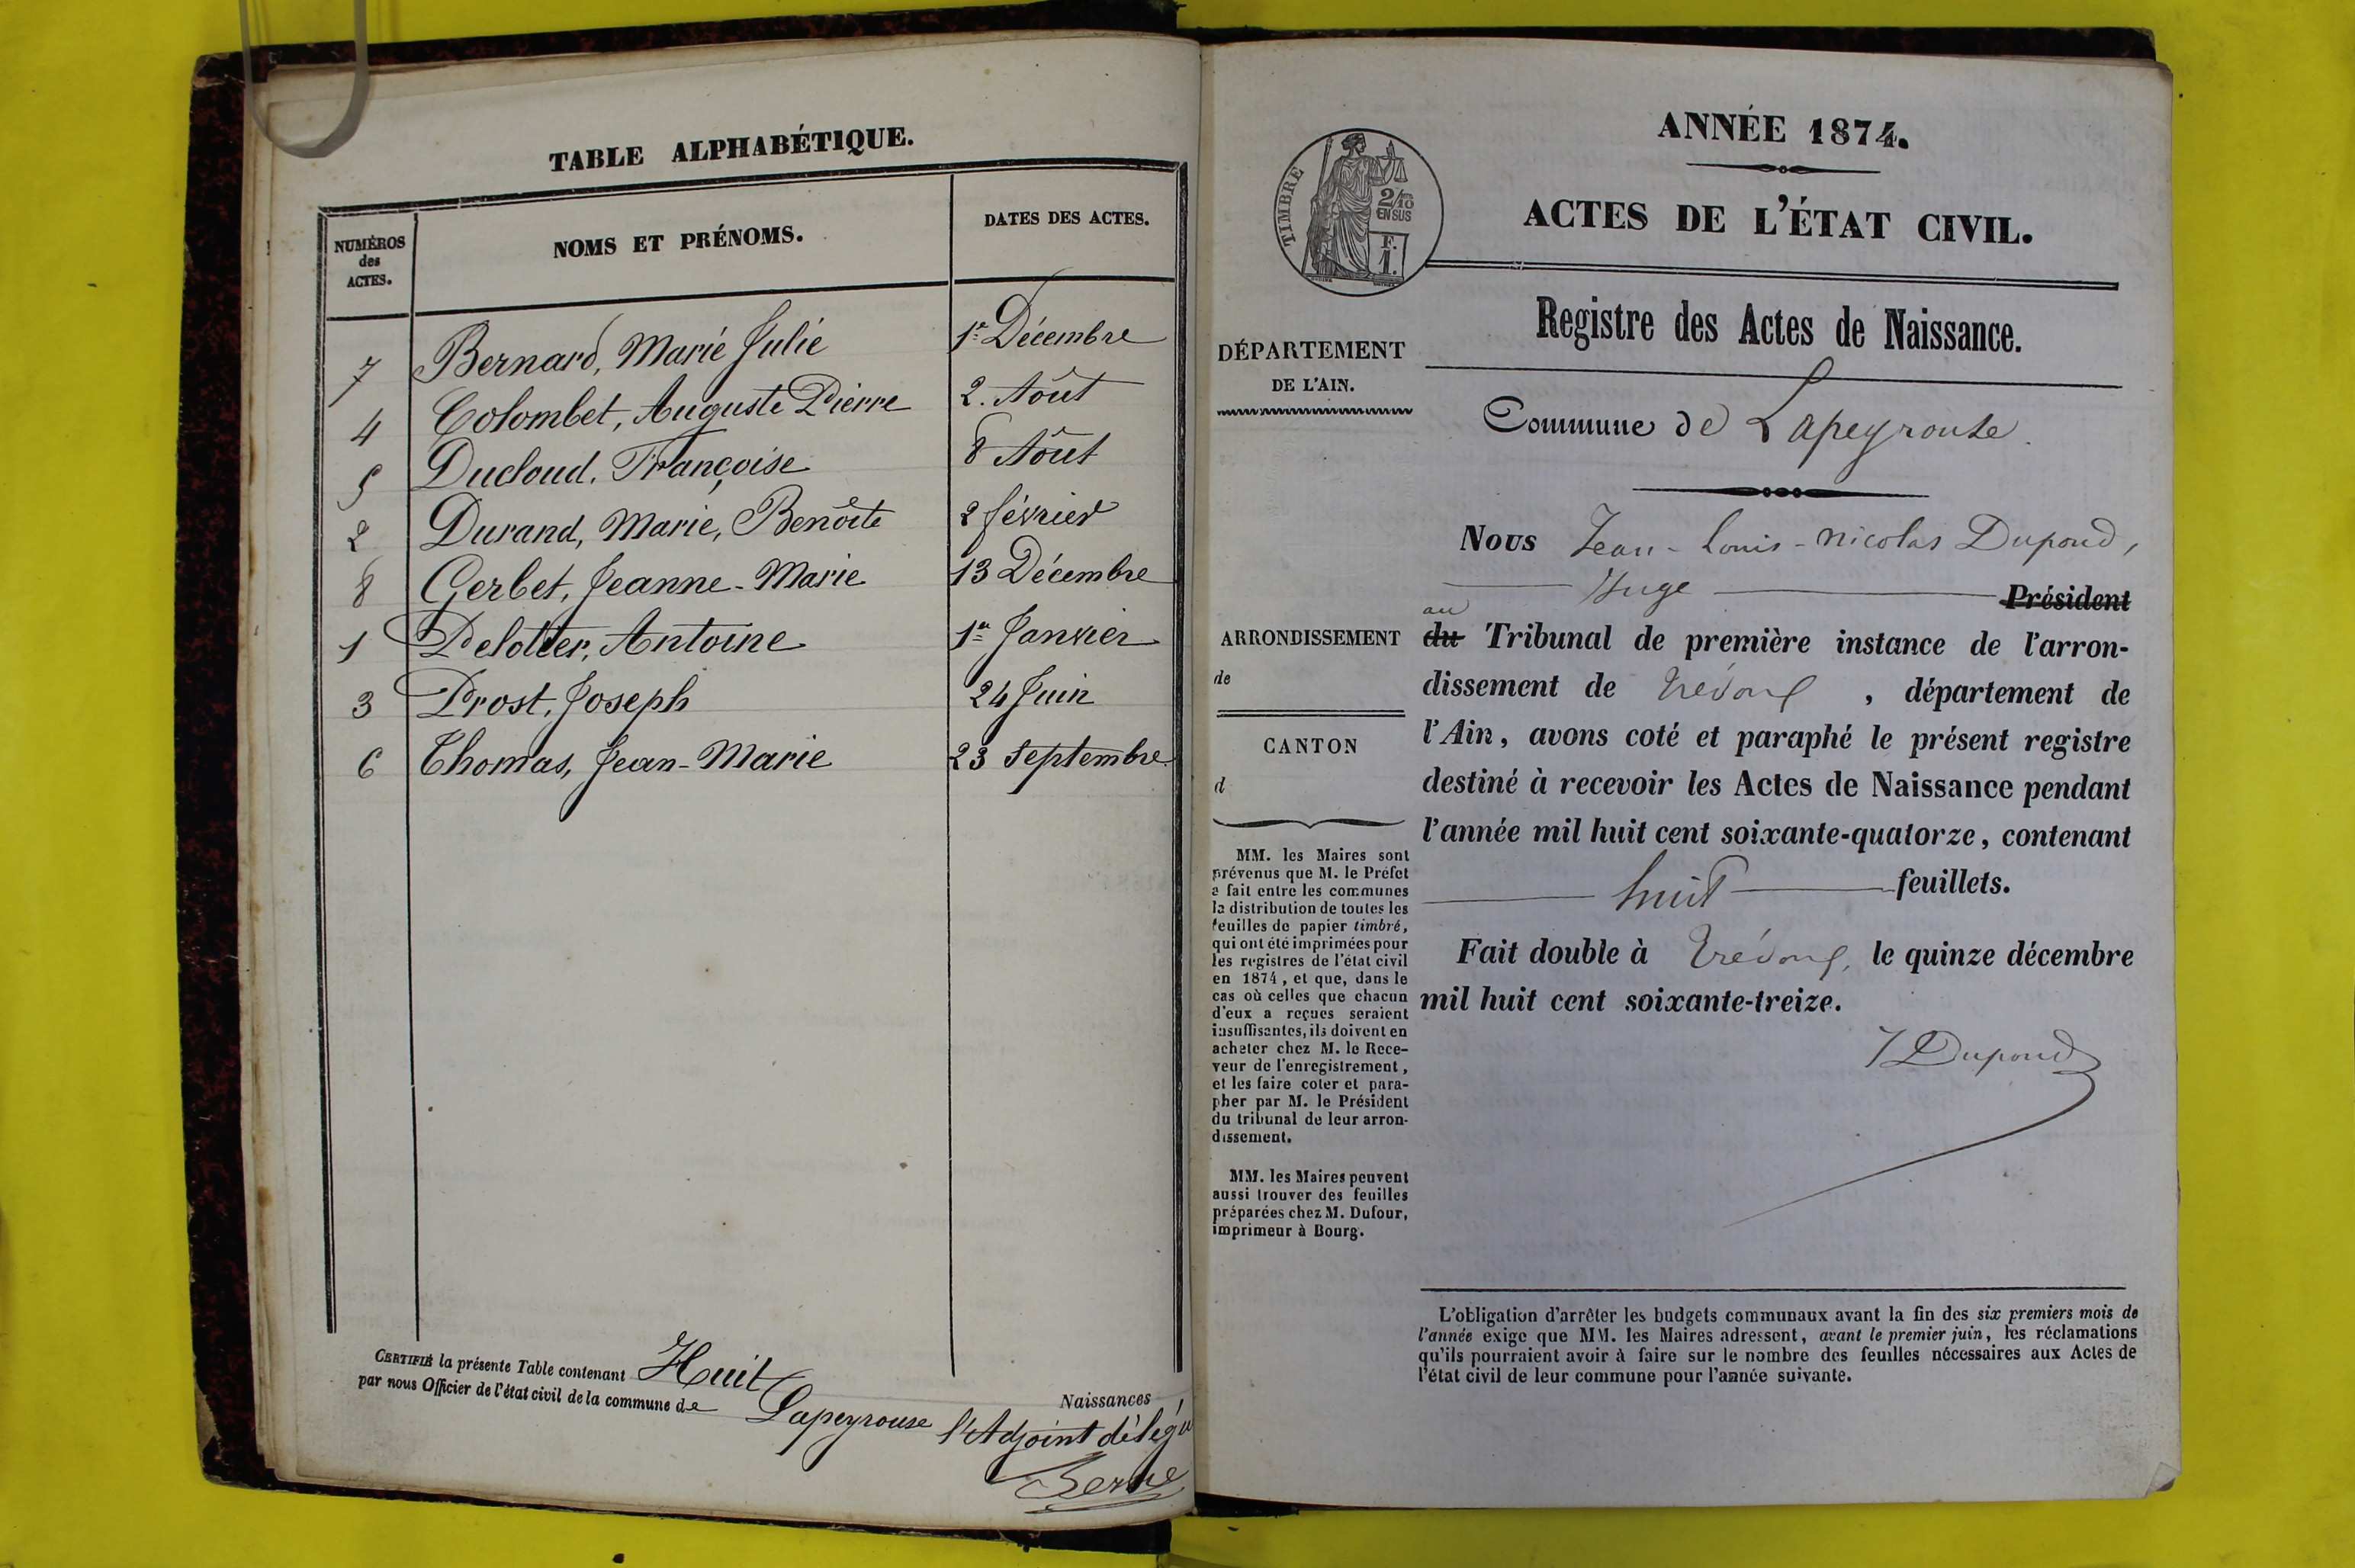 TABLE ALPHABÉTIQUE.
NUMÉROS
des
ACTES.
NOMS ET PRÉNOMS.
DATES DES ACTES.
7 Bernard, Marie Julie 1er Décembre
4 Colombet, Auguste Pierre 2. Août
5 Ducloud, Françoise 8 Août
2 Durand, Marie, Benoîte 2 février
8 Gerbet, Jeanne-Marie 13 Décembre
1 Antoine 1er Janvier
3 Prost, Joseph 24 Juin
6 Thomas, Jean-Marie 23 Septembre
CERTIFIÉ la présente Table contenant Huit Naissances
par nous Officier de l'état civil de la commune de Lapeyrouse l'Adjoint délégué
ANNÉE 1874.
ACTES DE L'ÉTAT CIVIL.
TIMBRE
2/10
EN SUS
F.
1.
Registre des Actes de Naissance.
DÉPARTEMENT
DE L'AIN.
Commune de Lapeyrouse.
Nous Jean-Louis-Nicolas Dupond,
Juge Président
au
du Tribunal de première instance de l'arron-
dissement de Trévoux, département de
l'Ain, avons coté et paraphé le présent registre
destiné à recevoir les Actes de Naissance pendant
l'année mil huit cent soixante-quatorze, contenant
huit feuillets.
Fait double à Trévoux, le quinze décembre
mil huit cent soixante-treize.
Dupond
ARRONDISSEMENT
de
CANTON
d
MM. les Maires sont
prévenus que M. le Préfet
a fait entre les communes
la distribution de toutes les
feuilles de papier timbré,
qui ont été imprimées pour
les registres de l'état civil
en 1874, et que, dans le
cas où celles que chacun
d'eux a reçues seraient
insuffisantes, ils doivent en
acheter chez M. le Rece-
veur de l'enregistrement,
et les faire coter et para-
pher par M. le Président
du tribunal de leur arron-
dissement.
MM. les Maires peuvent
aussi trouver des feuilles
préparées chez M. Dufour,
imprimeur à Bourg.
L'obligation d'arrêter les budgets communaux avant la fin des six premiers mois de
l'année exige que MM. les Maires adressent, avant le premier juin, les réclamations
qu'ils pourraient avoir à faire sur le nombre des feuilles nécessaires aux Actes de
l'état civil de leur commune pour l'année suivante.